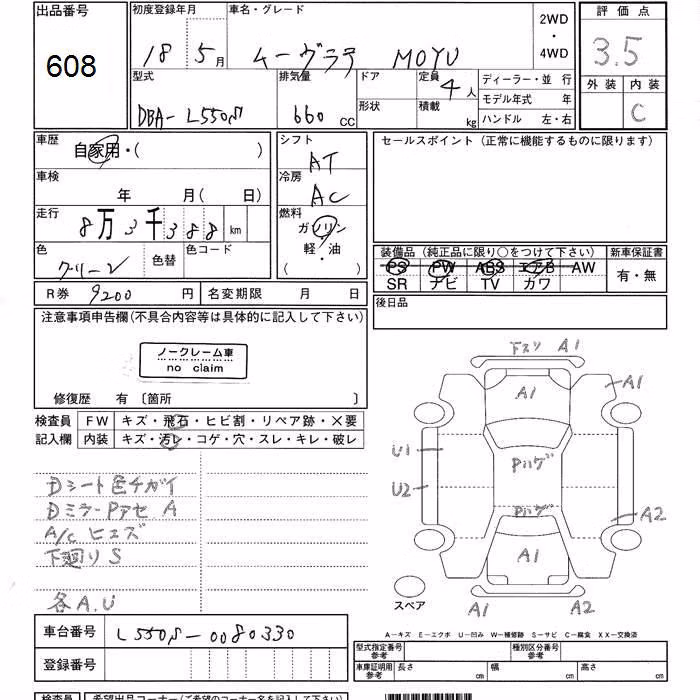 出品番号
608
初度登録年月
18年 5月
車名・グレード
ムーヴラテ MOYU
2WD
・
4WD
評価点
3.5
外装 内装
C
型式
DBA-L550S
排気量
660 CC
ドア
形状
定員
4人
積載
kg
ディーラー・並行
モデル年式 年
ハンドル 左・右
車歴
自家用・( )
車検
年 月( 日)
走行
8万3千388km
色
グリーン
色替
色コード
シフト
AT
冷房
AC
燃料
ガソリン
軽・油
( )
セールスポイント(正常に機能するものに限ります)
装備品(純正品に限り○をつけて下さい)
PS PW ABS エアB AW
SR ナビ TV カワ
新車保証書
有・無
R券 9200円
名変期限 月 日
後日品
注意事項申告欄(不具合内容等は具体的に記入して下さい)
ノークレーム車
no claim
修復歴 有〔箇所 〕
検査員 FW キズ・飛石・ヒビ割・リペア跡・×要
記入欄 内装 キズ・汚レ・コゲ・穴・スレ・キレ・破レ
Dシート色チガイ
DミラーPアセ A
A/c ヒエズ
下廻りS
各A.U
下スリ A1
A1
A1
U1
Pハゲ
U2
Pハゲ
A2
A1
スペア
A1
A2
A-キズ E-エクボ U-凹み W-補修跡 S-サビ C-腐食 XX-交換済
車台番号
L550S-0080330
登録番号
型式指定番号
参考
種別区分番号
参考
車庫証明用
参考
長さ cm
幅 cm
高さ cm
検査員
希望出品コーナー(ご希望のコーナー名を記入して下さい)